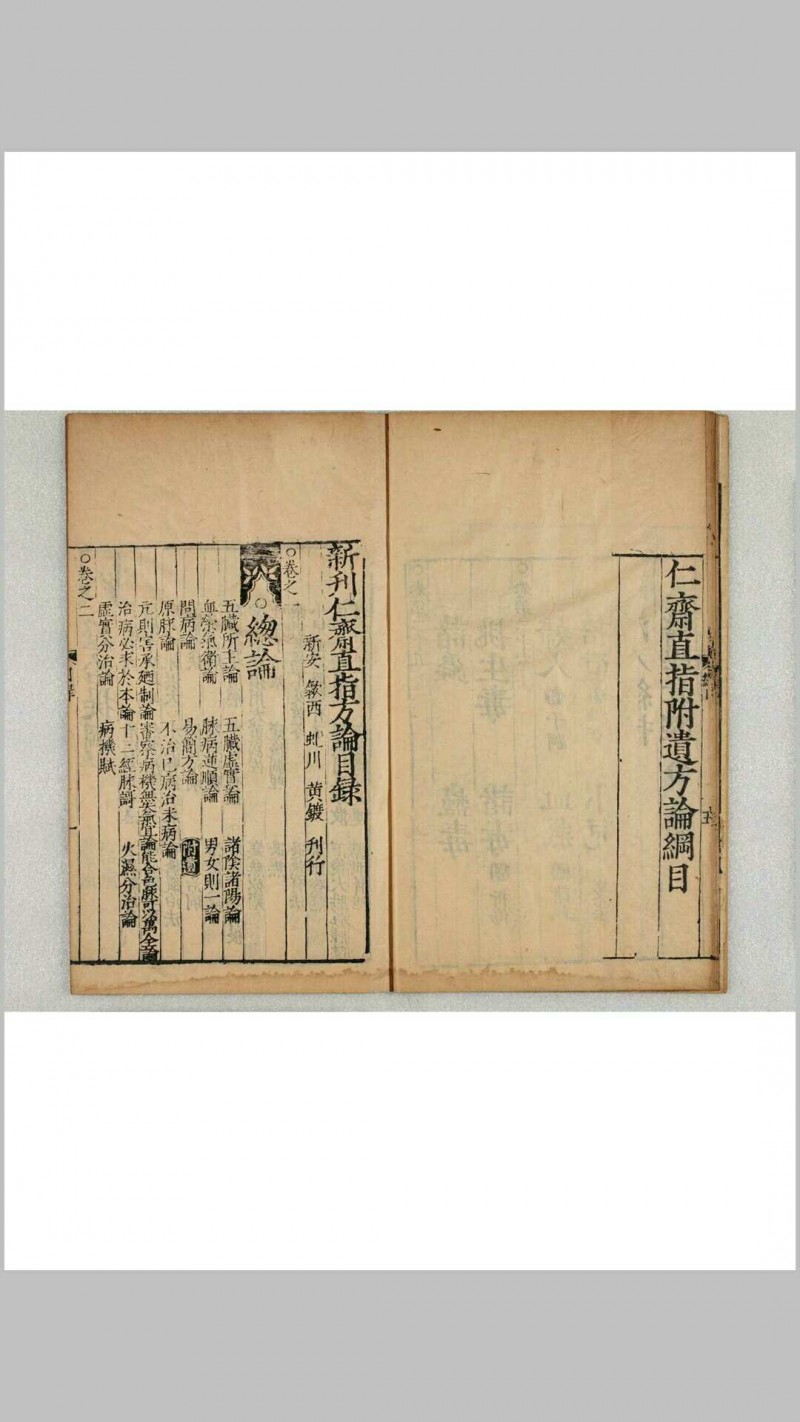 仁齋直指附遺方論綱目
新刊仁齋直指方論目録
新安 歙西 虬川 黄鍍 刊行
○卷之一
○總論
五臟所主論 五臟虚實論 諸陰諸陽論
血榮氣衛論 脉病逆順論 男女則一論
問病論 易簡方論 附遺
原脉論 不治已病治未病論
亢則害承廼制論 審察病機無失氣宜論 能合色脉可以萬全論
治病必求於本論 十二經脉謌 火濕分治論
虚實分治論 病機賦
○卷之二